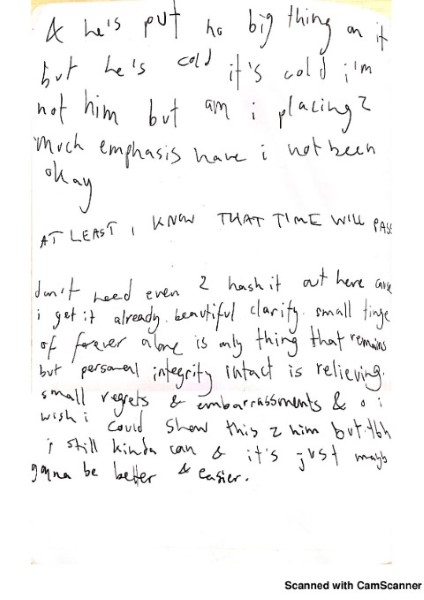 & he's put no big thing on it
but he's cold it's cold i'm
not him but am i placing 2
much emphasis have i not been
okay
AT LEAST I KNOW THAT TIME WILL PASS
don't need even 2 hash it out here cause
i get it already. beautiful clarify. small tinge
of forever alone is only thing that remains
but personal integrity intact is relieving.
small regrets & embarrassments & o i
wish i could show this 2 him but tbh
i still kinda can & it's just maybe
gonna be better & easier.
Scanned with CamScanner